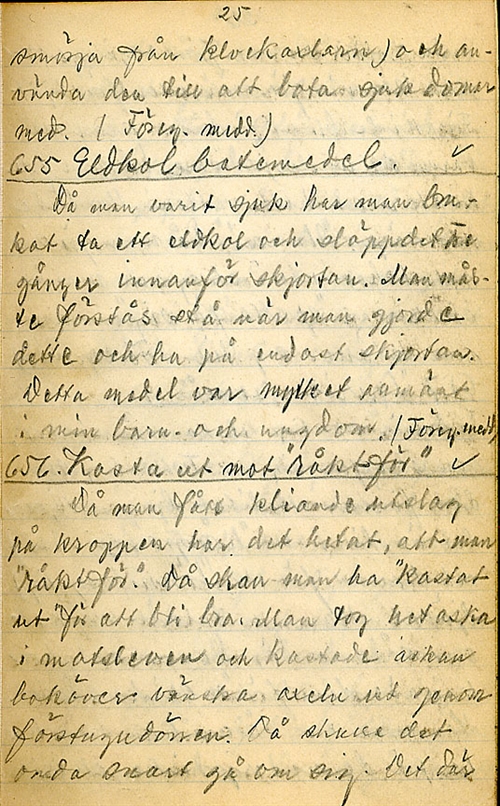 25
smörja från klockaxlarn) och an-
vända den till att bota sjukdomar
med. (Föreg. medd.)
655 Eldkol botemedel. ✓
Då man varit sjuk har man bru-
kat ta ett eldkol och släppdet tre
gånger innanför skjortan. Man mås-
te förstås stå när man gjorde
dette och ha på endast skjortan.
Detta medel var mycket använt
i min barn- och ungdom. (Föreg. medd.
656. Kasta ut mot "råkt för" ✓
Då man fått kliande utslag
på kroppen har det hetat, att man
"råkt för." Då skan man ha "kastat
ut" för att bli bra. Man tog het aska
i matsleven och kastade askan
baköver vänstra axeln ut genom
förstugudörren. Då skulle det
onda snart gå om sig. Det där